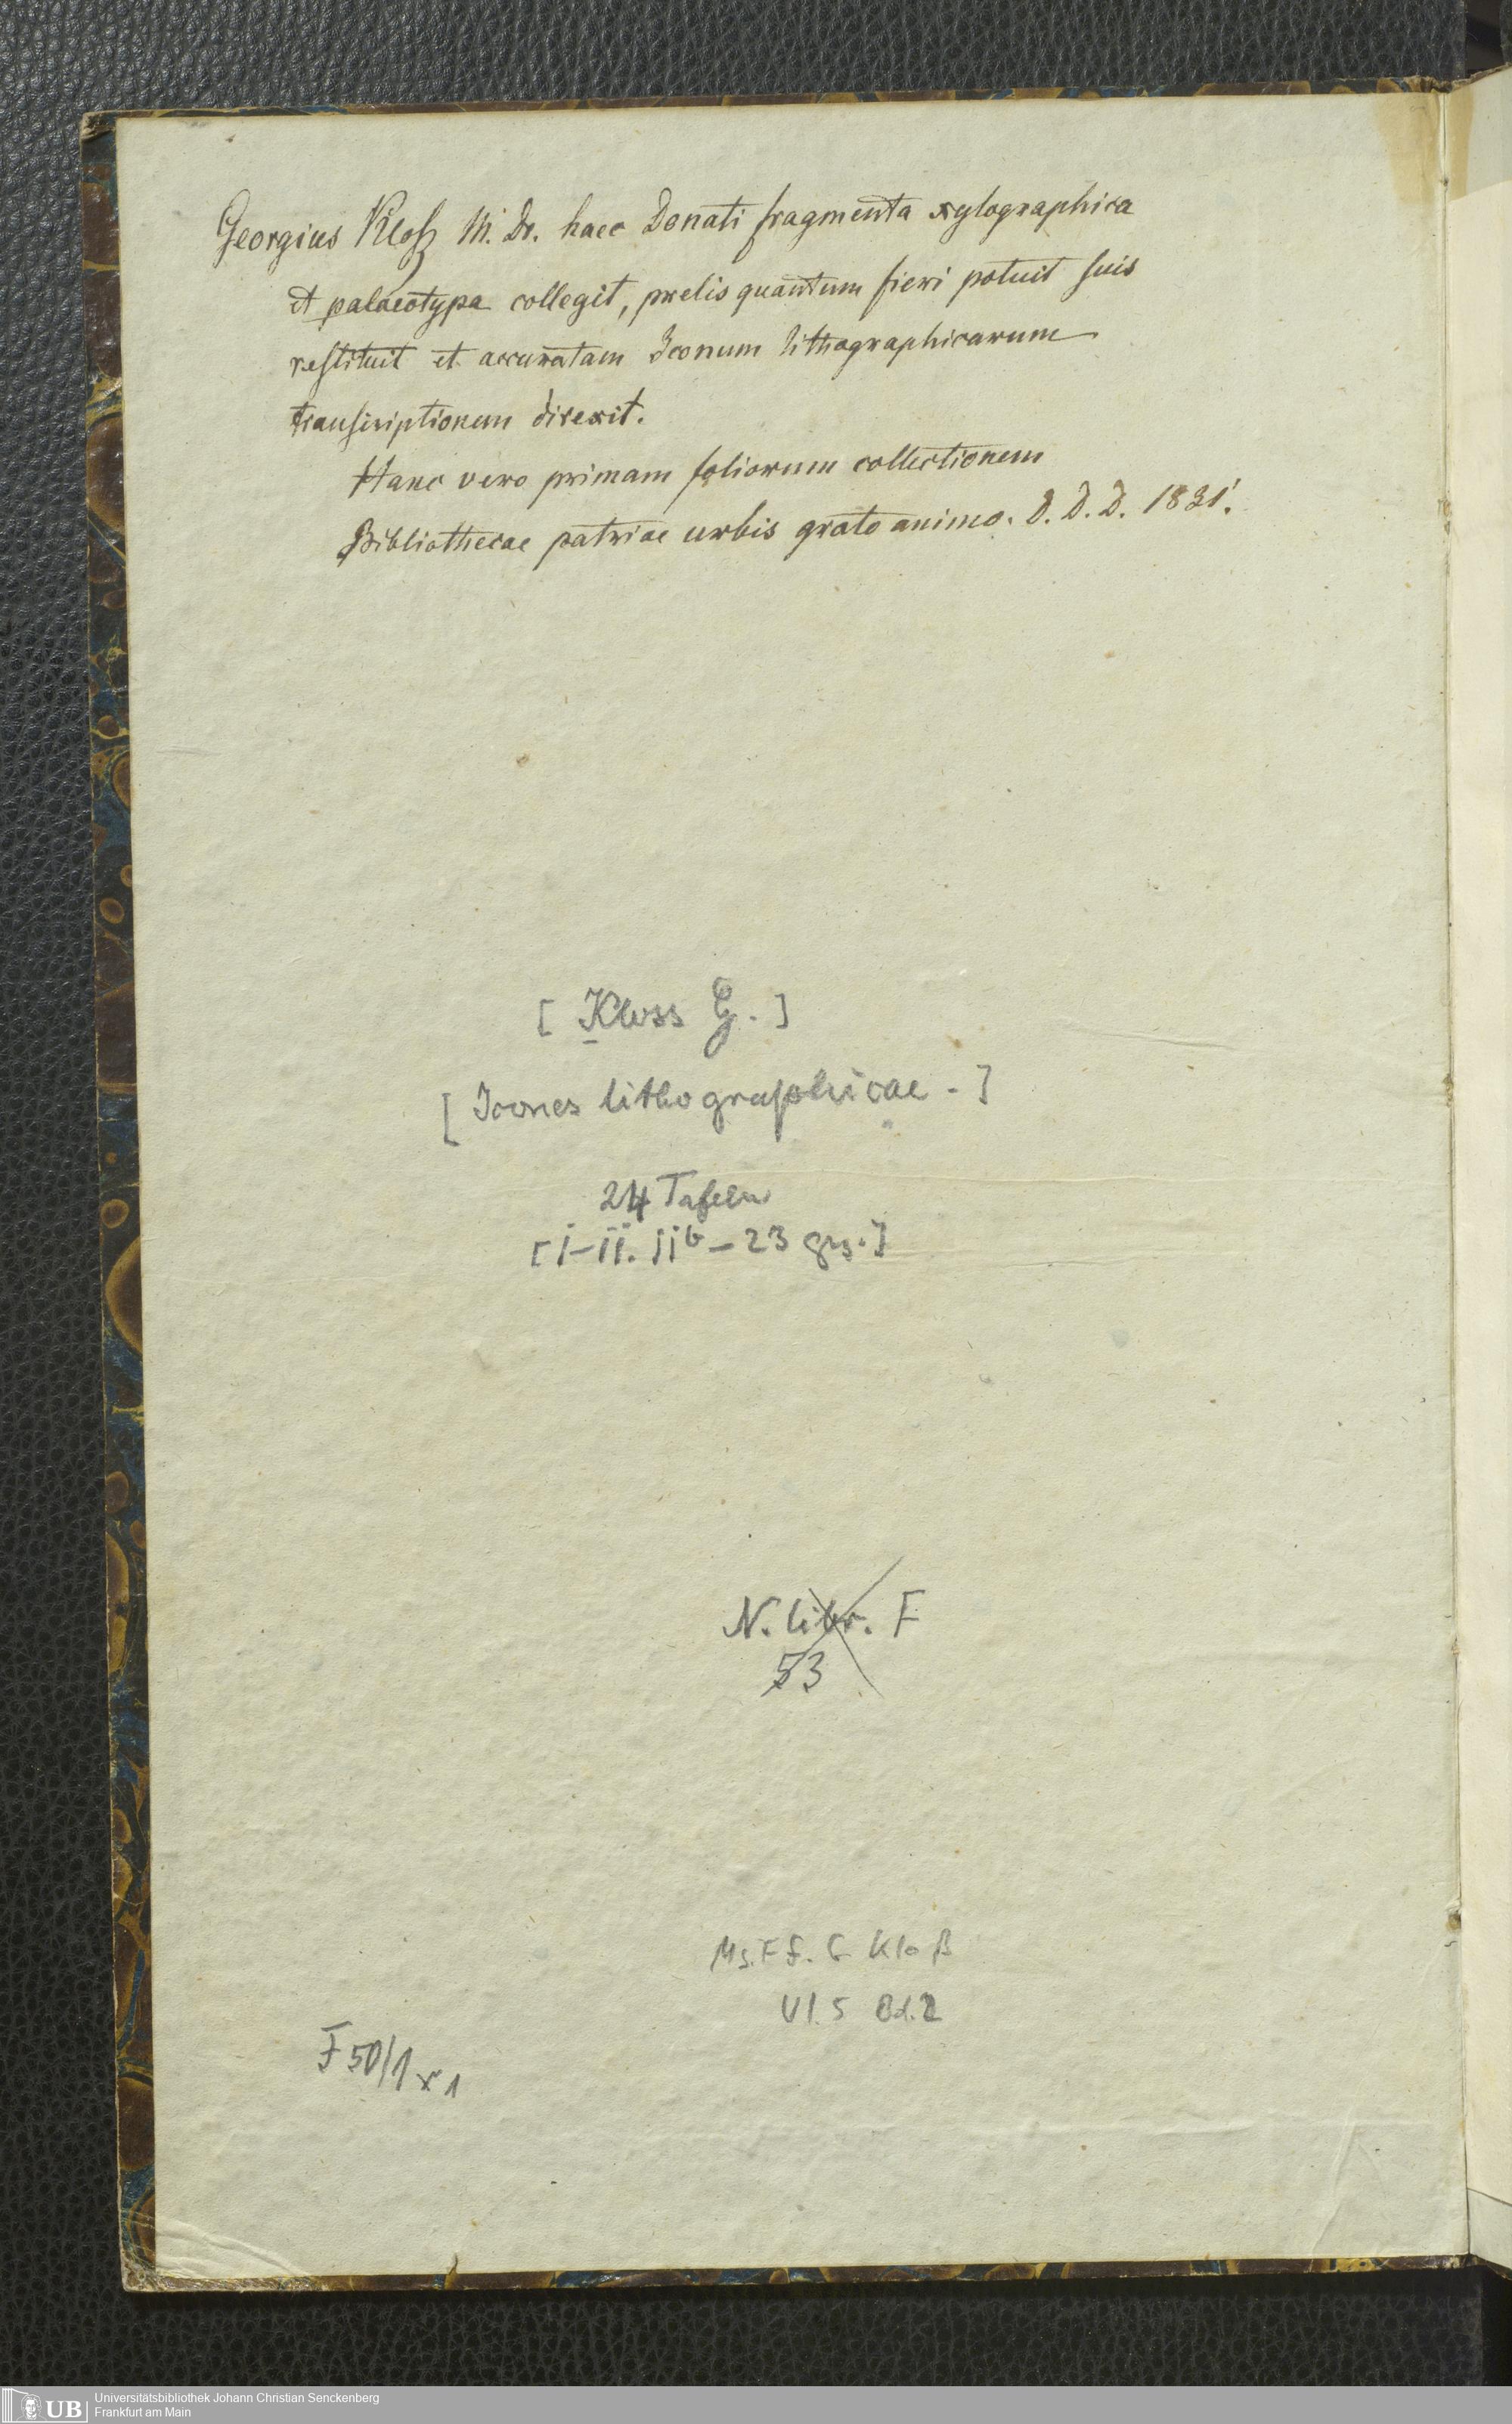 Georgius Kloß M. Dr. haec Donati fragmenta xylographica
et palaeotypa collegit, prelis quantum fieri potuit suis
restituit et accuratam Iconum lithographicarum
transcriptionem direxit.
Hanc vero primam foliorum collectionem
Bibliothecae patriae urbis grato animo. D. D. D. 1831.
[ Kloss G. ]
[ Icones lithographicae - ]
24 Tafeln
[ i-ii. iib - 23 gez. ]
N. libr. F
53
Ms. Ff. G. Kloß
VI. 5 Bd. 2
F 50/1 x 1
UB
Universitätsbibliothek Johann Christian Senckenberg
Frankfurt am Main